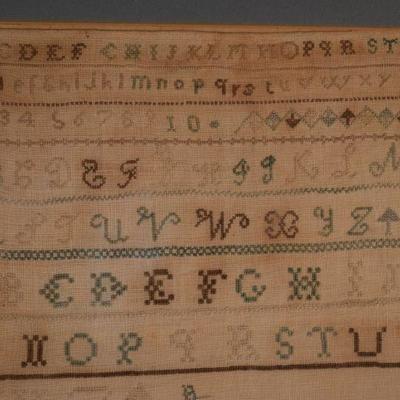 C D E F G H I J K L M N O P Q R S T
d e f g h i j k l m n o p q r s t u v w x y
3 4 5 6 7 8 9 10
C D E F G H I J K L M
S T U V W X Y Z
B C D E F G H I
N O P Q R S T U